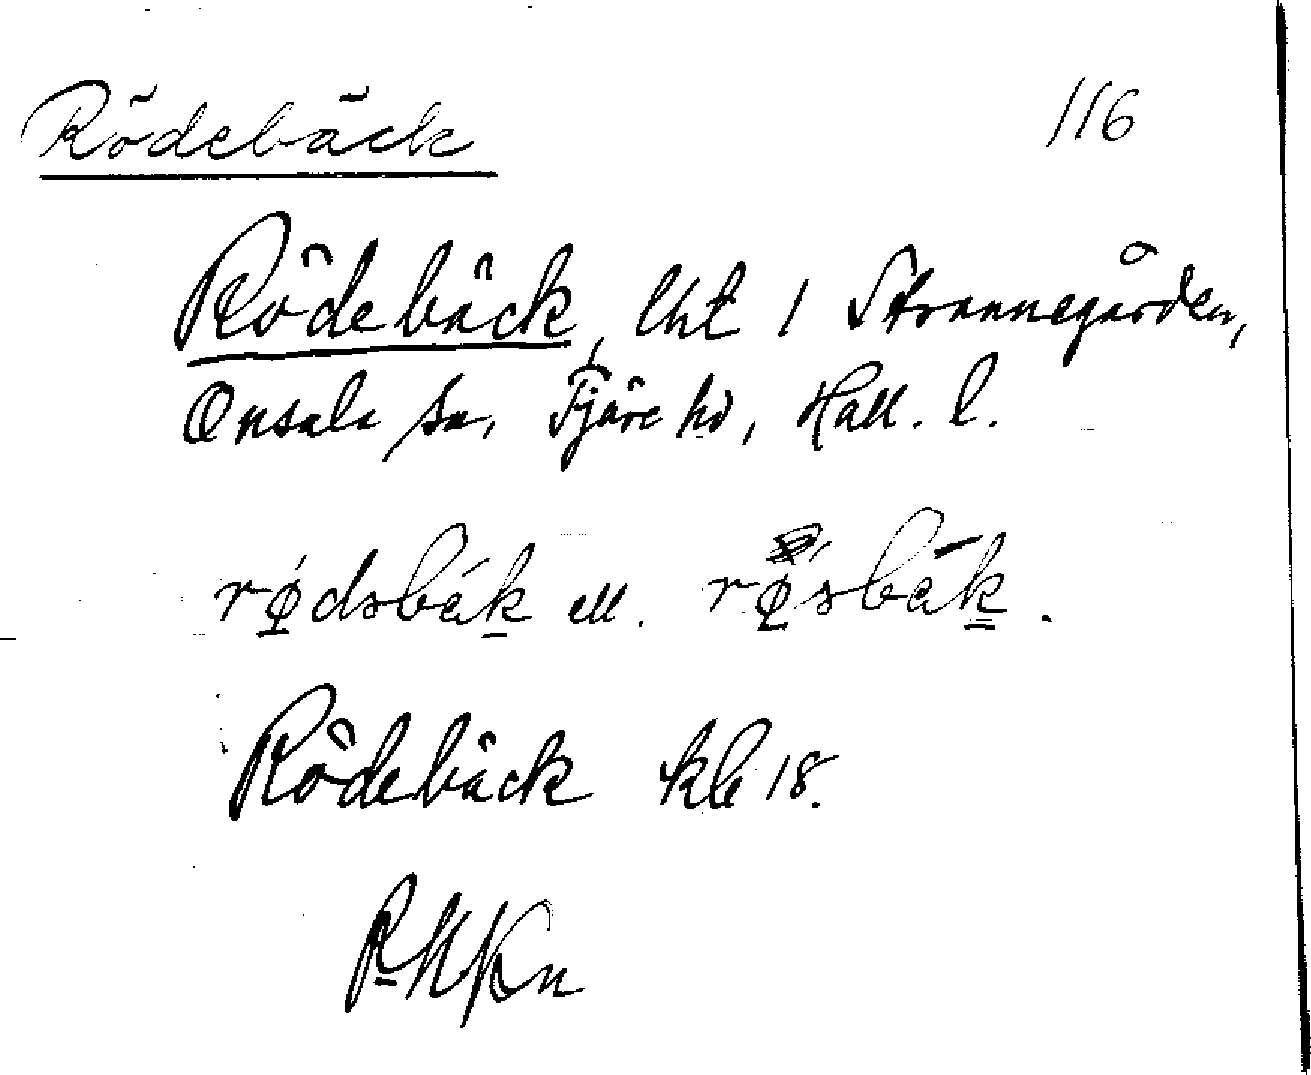 Rödebäck 116
Rödebäck, lht 1 Strannegården,
Onsala sn, Fjäre hd, Hall. l.
rø̱dsbák̲ ell. rø̱̀sbāk̳.
Rödebäck kb 18.